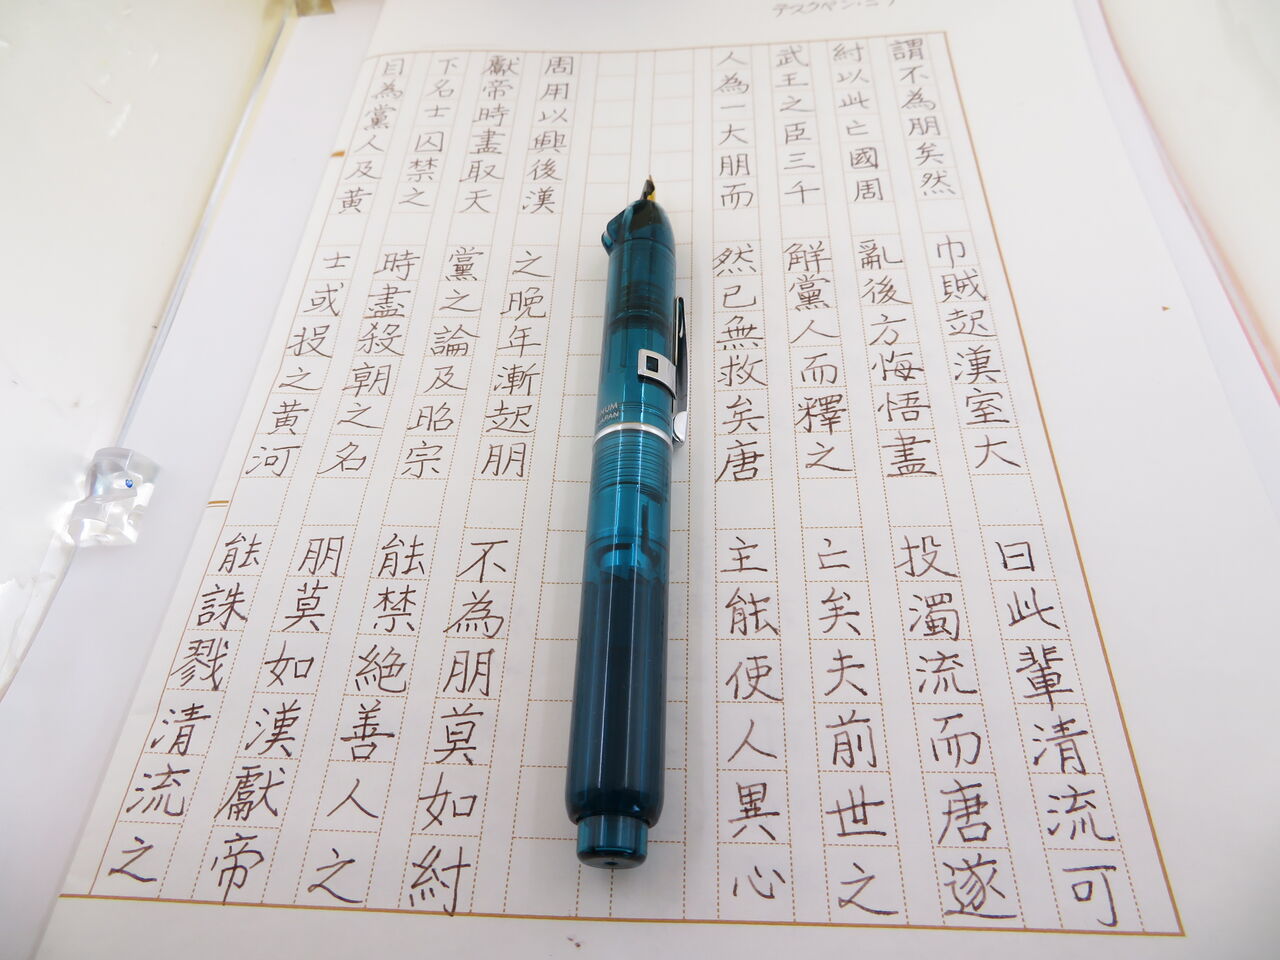 デスクペン
謂不為朋矣然
紂以此亡國周
武王之臣三千
人為一大朋而
周用以興後漢
獻帝時盡取天
下名士囚禁之
目為黨人及黃
巾賊起漢室大
亂後方悔悟盡
觧黨人而釋之
然已無救矣唐
之晚年漸起朋
黨之論及昭宗
時盡殺朝之名
士或投之黃河
曰此輩清流可
投濁流而唐遂
亡矣夫前世之
主能使人異心
不為朋莫如紂
能禁絕善人之
朋莫如漢獻帝
能誅戮清流之